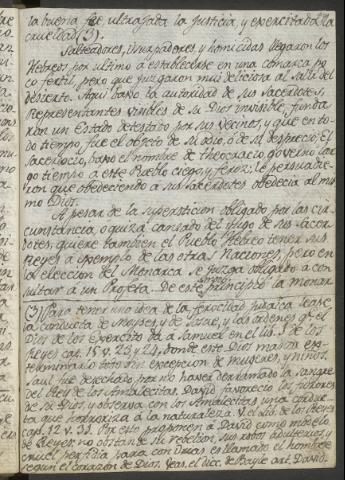 la buena fe ultrajada la Justicia, y exercitada la
crueldad (3).
Salteadores, usurpadores y homicidas llegaron los
Hebreos por ultimo a establecerse en una comarca po
co fertil, pero que juzgaron mui deliciosa al salir del
desierto. Aqui baxo la autoridad de sus sacerdotes,
Representantes visibles de su Dios invisible, funda
ron un Estado detestado por sus vecinos, y que en to
do tiempo, fue el objeto de su odio, ò de su desprecio. El
Sacerdocio, baxo el nombre de theocracia, governo lar
go tiempo a este Pueblo ciego y feroz; le persuadie
ron que obedeciendo a sus sacerdotes obedecia al mis
mo Dios.
A pesar de la supersticion obligado por las cir
cunstancia, o quizá cansado del iugo de sus sacer
dotes, quiere tambien el Pueblo Hebreo tener sus
Reyes a exemplo de las otras Naciones; pero en
la eleccion del Monarca se juzga obligado a con
sultar á un Profeta. De este principio la monar
(3) Para tener una idea de la ferocidad judaica lease
la conducta de Moyses, y de Josue, y las ordenes qe. el
Dios de los Exercito da a Samuel en el lib. 1 de los
Reyes cap. 15 v. 23 y 24, donde este Dios manda ex-
terminarlo todo sin excepcion de mugeres, y niños.
Saul fue desechado por no haver derramado la sangre
del Rey de los Amalecitas. David favorecio los furores
de su Dios, y observa con los Amonitas una conduc
ta que horroriza a la naturaleza. V. el lib. de los Reyes
cap. 12 v. 31. Por esto proponen a David como modelo
de Reyes; no obstante su rebelion, sus robos adulterios, y
cruel perfidia para con Urias es llamado el hombre
segun el corazon de Dios. Veas. el dicc. de Bayle art. David.